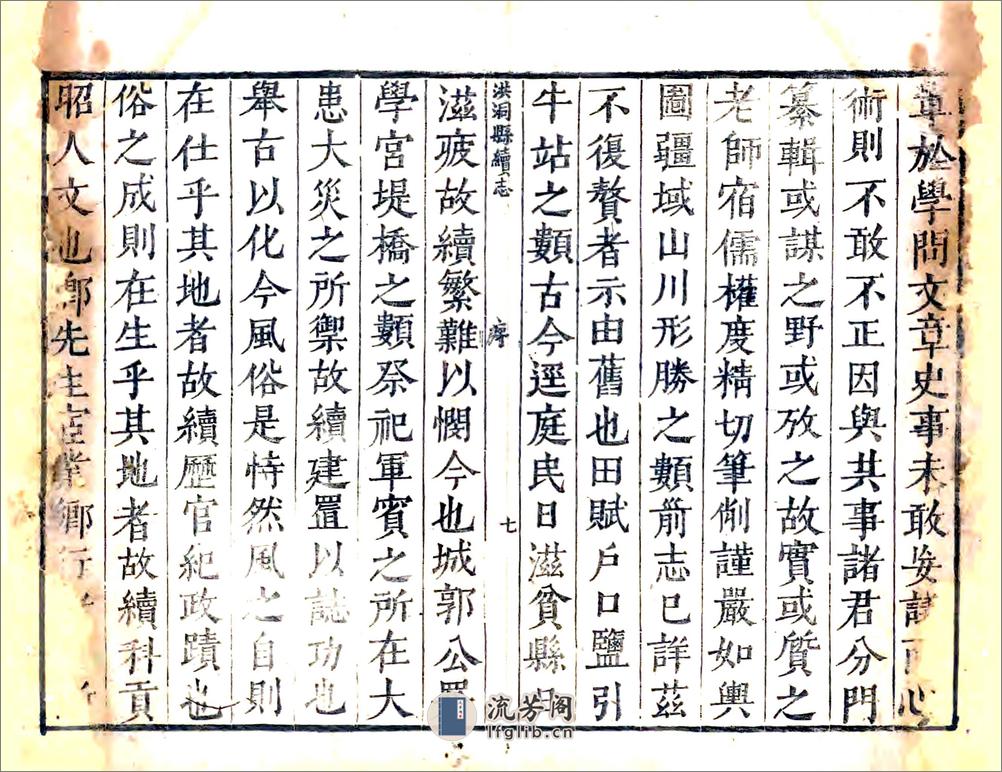 章於學問文章史事未敢妄議而心
術則不敢不正因與共事諸君分門
纂輯或謀之野或攷之故實或質之
老師宿儒權度精切筆削謹嚴如輿
圖疆域山川形勝之類前志已詳茲
不復贅者示由舊也田賦戶口鹽引
牛站之類古今逕庭民日滋貧縣日
洪洞縣續志 序 七
滋疲故續繁難以憫今也城郭公署
學宮堤橋之類祭祀軍賓之所在大
患大災之所禦故續建置以誌功也
舉古以化今風俗是恃然風之自則
在仕乎其地者故續歷官紀政蹟也
俗之成則在生乎其地者故續科貢
昭人文也鄉先生宦業鄉行
流芳阁
lfglib.cn